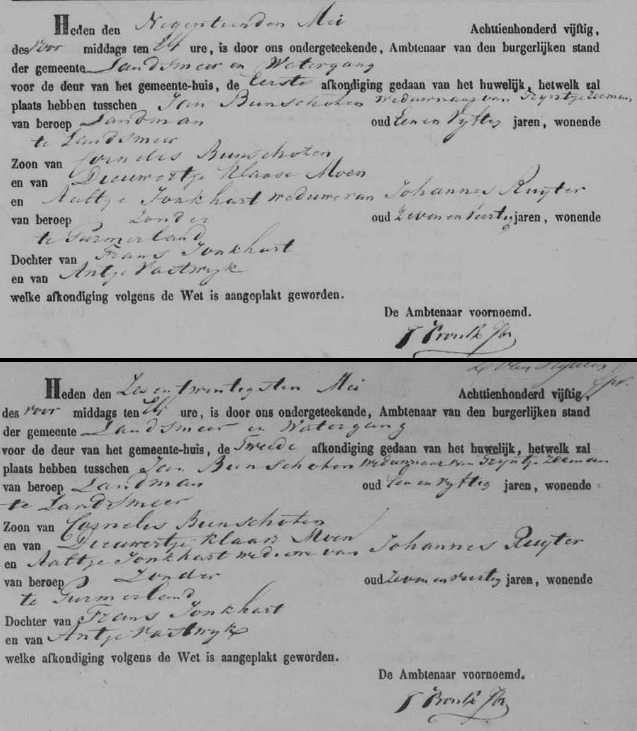 Heden den Negentienden Mei Achttienhonderd vijftig,
des voor middags ten elf ure, is door ons ondergeteekende, Ambtenaar van den burgerlijken stand
der gemeente Landsmeer en Watergang
voor de deur van het gemeente-huis, de Eerste afkondiging gedaan van het huwelijk, hetwelk zal
plaats hebben tusschen Jan Bunschoten weduwnaar van Tryntje Zieman
van beroep Landman oud Een en Vyftig jaren, wonende
te Landsmeer
Zoon van Cornelis Bunschoten
en van Dieuwertje Klaase Moen
en Aaltje Jonkhart weduwe van Johannes Ruyter
van beroep Zonder oud Zeven en Veertig jaren, wonende
te Purmerland
Dochter van Frans Jonkhart
en van Antje Vastwyk
welke afkondiging volgens de Wet is aangeplakt geworden.
De Ambtenaar voornoemd.
Heden den Zesentwintigsten Mei Achttienhonderd vijftig,
des voor middags ten elf ure, is door ons ondergeteekende, Ambtenaar van den burgerlijken stand
der gemeente Landsmeer en Watergang
voor de deur van het gemeente-huis, de Tweede afkondiging gedaan van het huwelijk, hetwelk zal
plaats hebben tusschen Jan Bunschoten weduwnaar van Tryntje Zieman
van beroep Landman oud Een en Vyftig jaren, wonende
te Landsmeer
Zoon van Cornelis Bunschoten
en van Dieuwertje Klaase Moen
en Aaltje Jonkhart weduwe van Johannes Ruyter
van beroep Zonder oud Zeven en Veertig jaren, wonende
te Purmerland
Dochter van Frans Jonkhart
en van Antje Vastwyk
welke afkondiging volgens de Wet is aangeplakt geworden.
De Ambtenaar voornoemd.